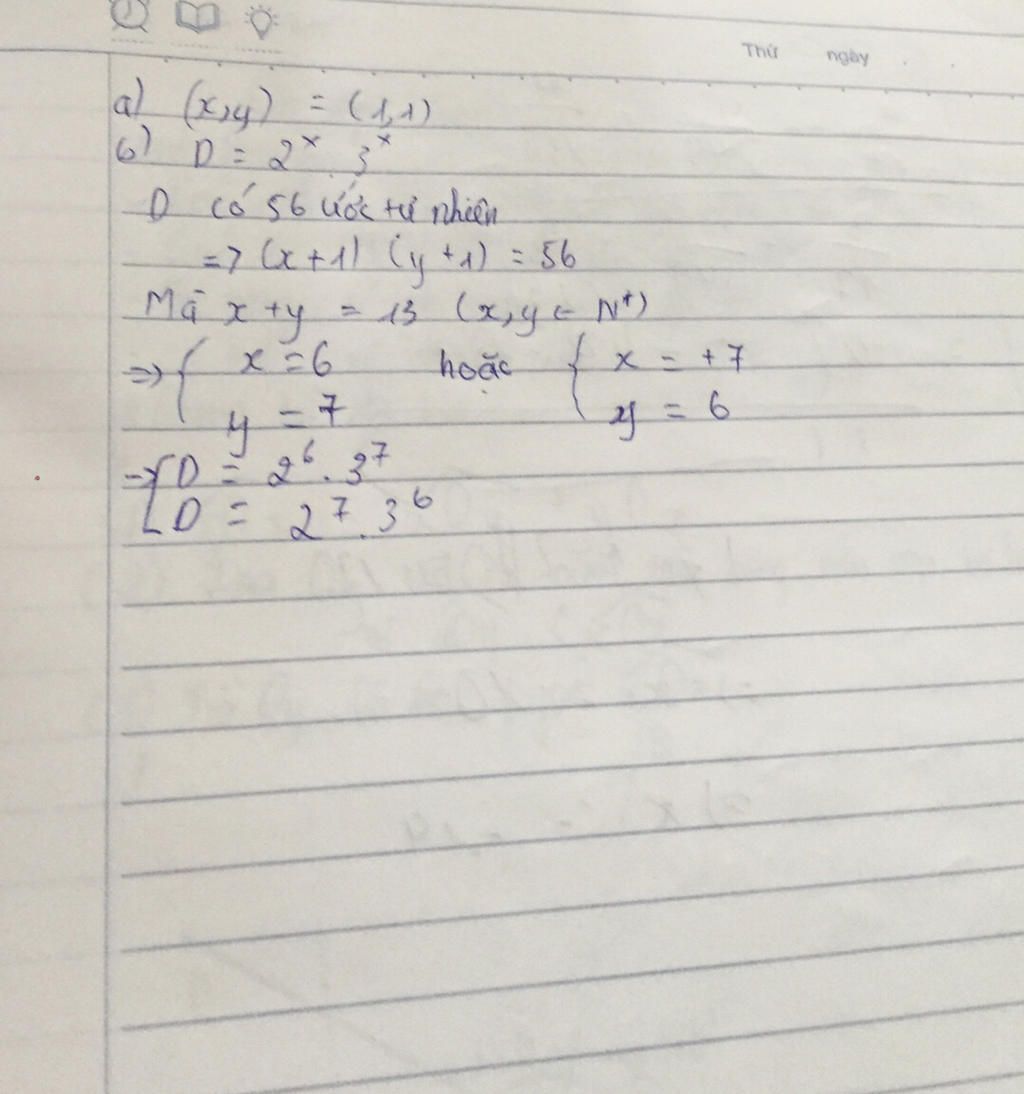 Thứ ngày . .
a) (x,y) = (1,1)
b) D = 2^x . 3^x
D có 56 ước tự nhiên
=> (x+1) (y+1) = 56
Mà x+y = 13 (x,y ∈ N*)
=> { x = 6 hoặc { x = +7
y = 7 y = 6
=> [ D = 2^6 . 3^7
D = 2^7 . 3^6